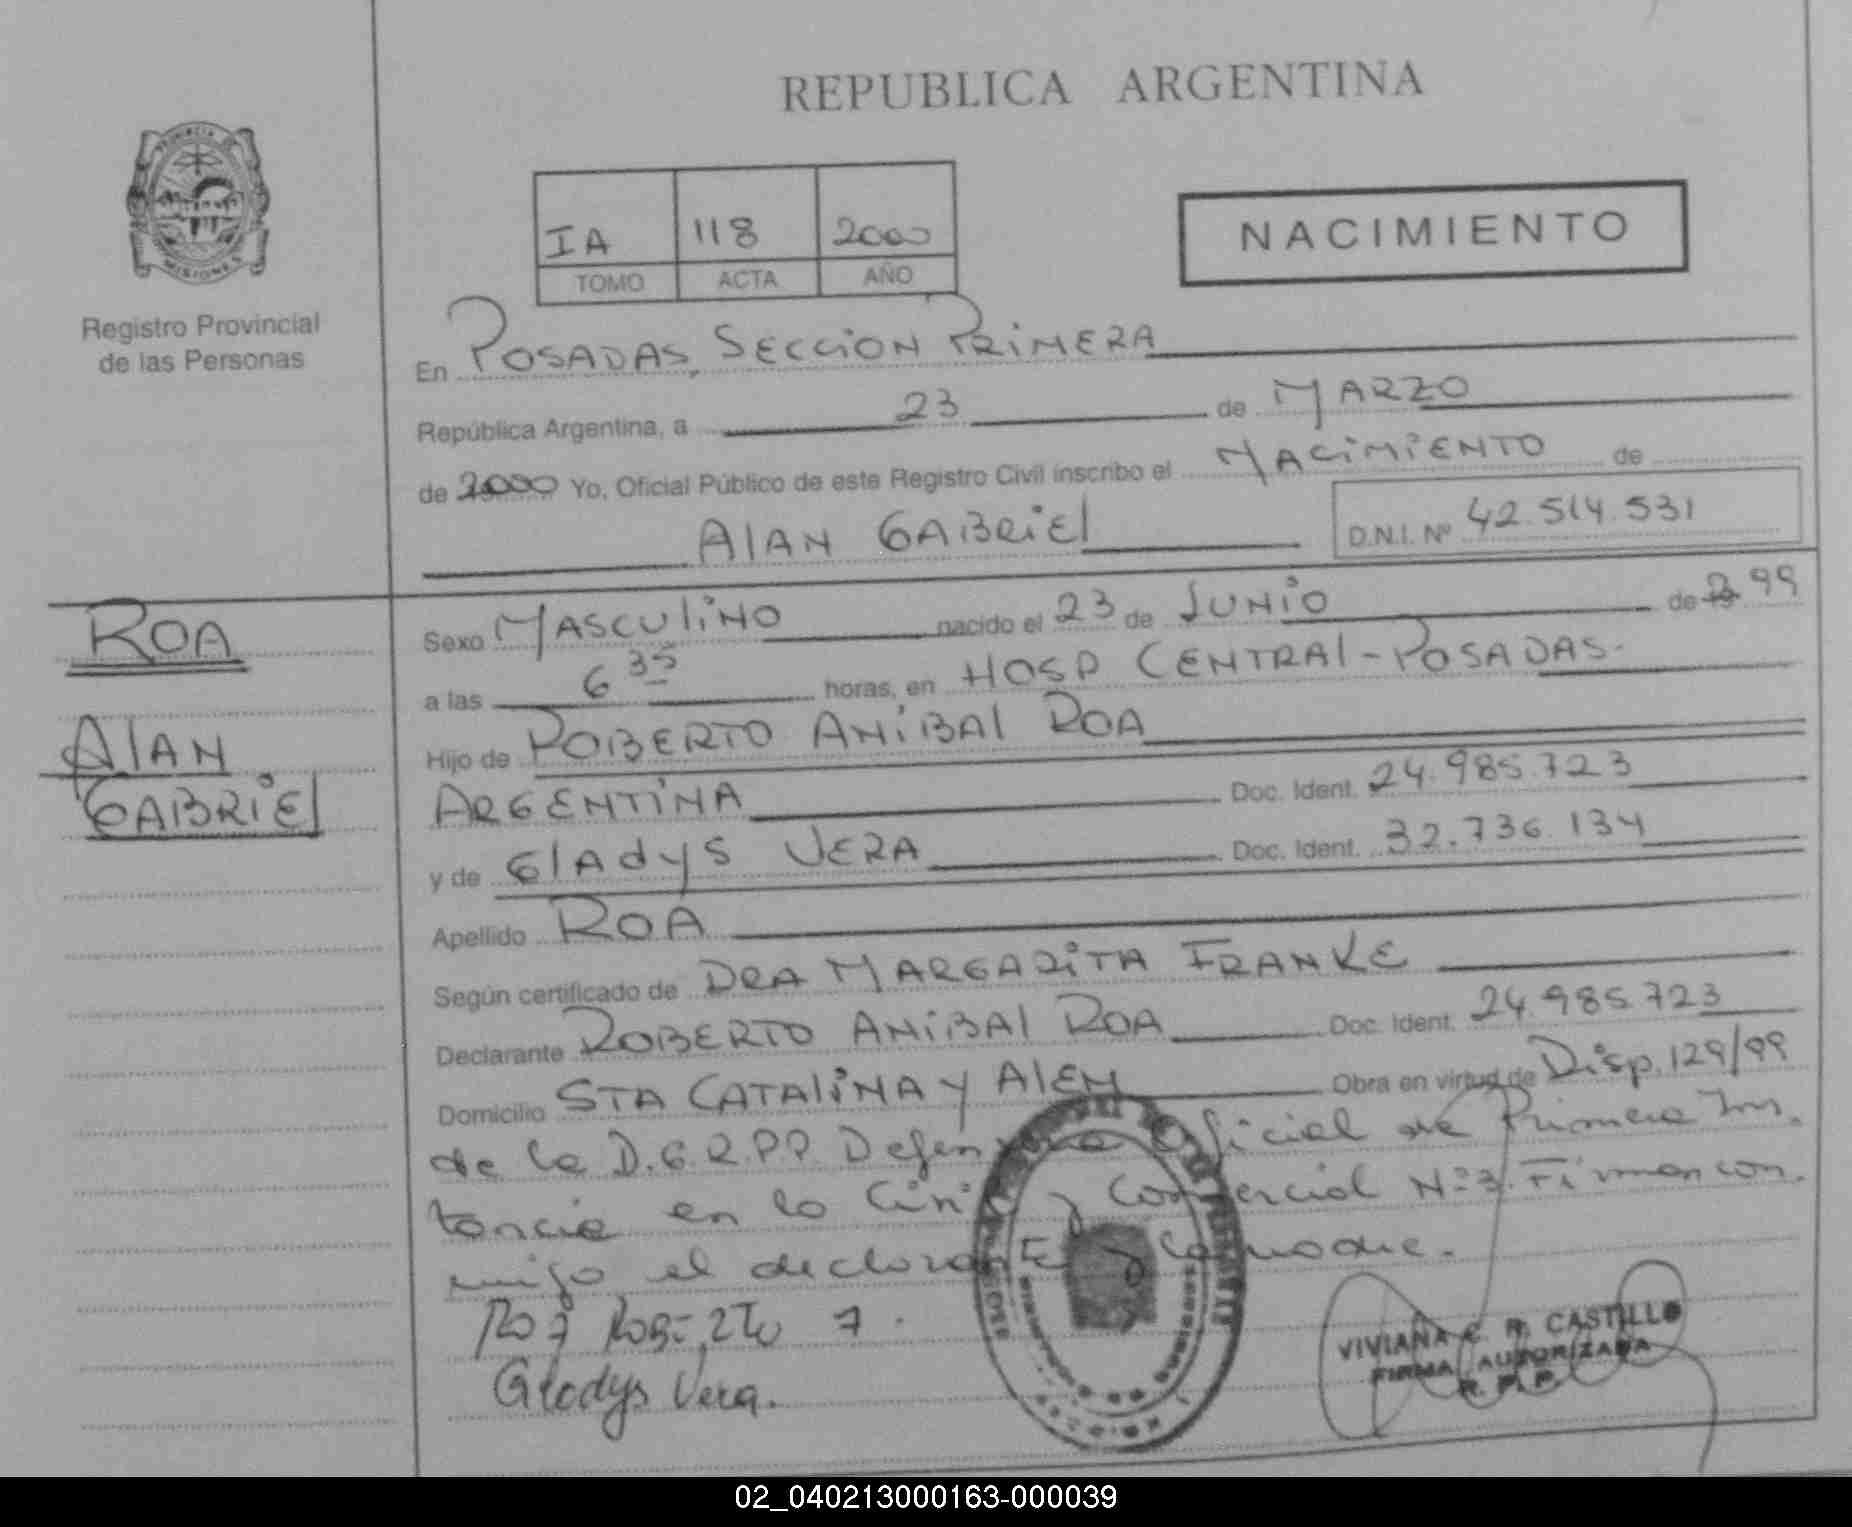 REPUBLICA ARGENTINA
PROVINCIA DE
MISIONES
Registro Provincial
de las Personas
IA 118 2000
TOMO ACTA AÑO
NACIMIENTO
En POSADAS, SECCION PRIMERA
República Argentina, a 23 de MARZO
de 2000 Yo, Oficial Público de este Registro Civil inscribo el NACIMIENTO de
ALAN GABRIEL D.N.I. Nº 42.514.531
ROA
ALAN
GABRIEL
Sexo MASCULINO nacido el 23 de JUNIO de 99
a las 6 35 horas, en HOSP CENTRAL - POSADAS.
Hijo de ROBERTO ANIBAL ROA
ARGENTINA Doc. Ident. 24.985.723
y de GLADYS VERA Doc. Ident. 32.736.134
Apellido ROA
Según certificado de DRA MARGARITA FRANKE
Declarante ROBERTO ANIBAL ROA Doc. Ident. 24.985.723
Domicilio STA CATALINA Y ALEM Obra en virtud de Disp. 129/99
de la D.G.R.P.P. Defensoria Oficial de Primera Ins.
tancia en lo Civil y Comercial Nº 3. Firman con.
migo el declarante y la madre.
Gladys Vera.
VIVIANA C. R. CASTILLO
FIRMA AUTORIZADA
R. P. P.
02_040213000163-000039